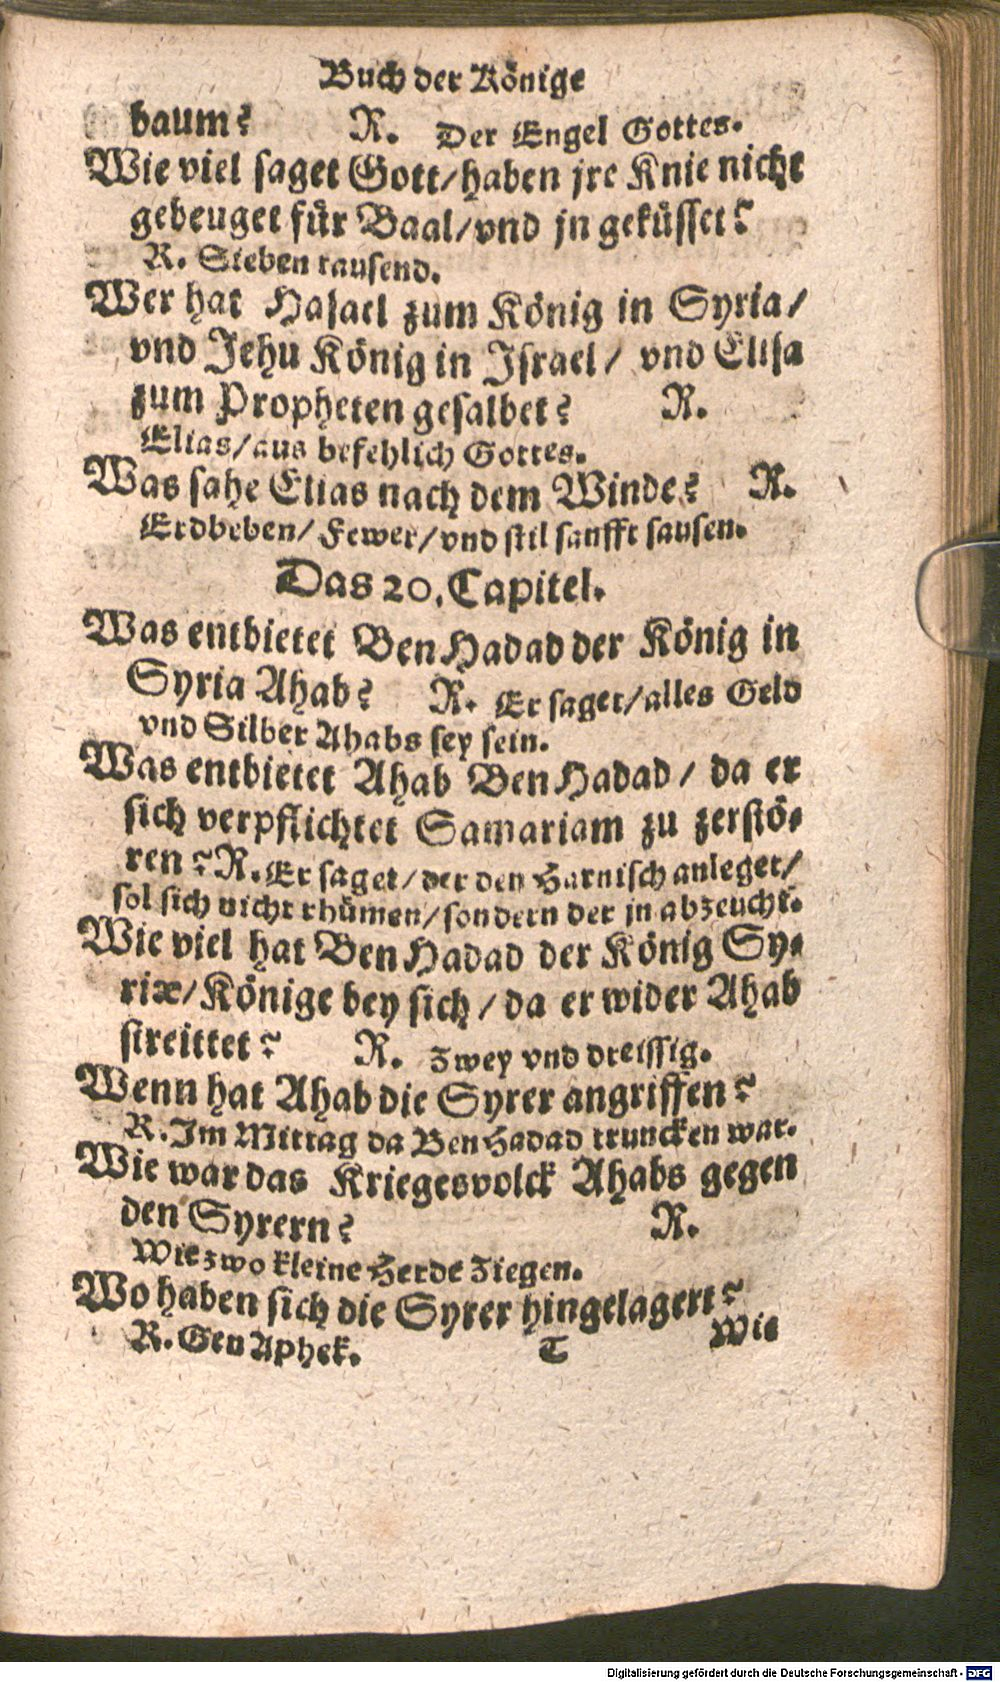 Buch der Könige
baum? R. Der Engel Gottes.
Wie viel saget Gott/haben jre Knie nicht
gebeuget für Baal/vnd jn geküsset?
R. Sieben tausend.
Wer hat Hasael zum König in Syria/
vnd Jehu König in Israel/ vnd Elisa
zum Propheten gesalbet? R.
Elias/aus befehlich Gottes.
Was sahe Elias nach dem Winde? R.
Erdbeben/ Fewer/vnd stil sanfft sausen.
Das 20. Capitel.
Was entbietet Ben Hadad der König in
Syria Ahab? R. Er saget/alles Geld
vnd Silber Ahabs sey sein.
Was entbietet Ahab Ben Hadad/ da er
sich verpflichtet Samariam zu zerstö-
ren? R. Er saget/der den Harnisch anleget/
sol sich nicht rhümen/sondern der jn abzeucht.
Wie viel hat Ben Hadad der König Sy-
riæ/Könige bey sich/da er wider Ahab
streittet? R. Zwey vnd dreissig.
Wenn hat Ahab die Syrer angriffen?
R. Im Mittag da Ben Hadad truncken war.
Wie war das Kriegesvolck Ahabs gegen
den Syrern? R.
Wie zwo kleine Herde Ziegen.
Wo haben sich die Syrer hingelagert?
R. Gen Aphek. T Wie
Digitalisierung gefördert durch die Deutsche Forschungsgemeinschaft - DFG